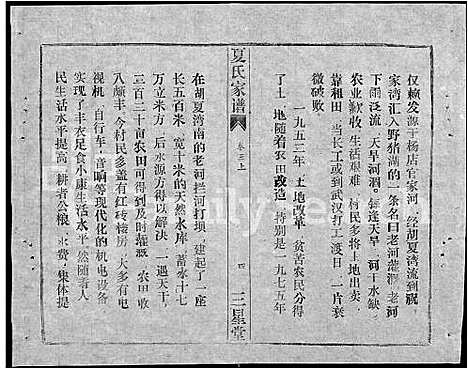 仅赖发源于杨店官家河、经胡夏湾流到祝
家湾汇入野猪湖的一条名曰老河灌溉。老河
下润泛流，天旱河涸。每逢天旱，河干水缺、
农业歉收、生活艰难，村民多将土地出卖，
靠租田、当长工或到武汉打工渡日，一片衰
微破败。
一九五二年，土地改革，贫苦农民分得
了土地。随着农田改造，特别是一九七五年
夏氏家谱
卷三上
四
三星堂
在胡夏湾南的老河拦河打坝，建起了一座
长五百米，宽十米的天然水库，蓄水十七
万立米，水源方得以解决，一遇天干，
三百二十亩农田可得到及时灌溉，农田收
入颇丰。今村民多盖有红砖楼房，大多有电
视机、自行车、音响等现代化的机电设备，
实现了丰衣足食小康生活水平。然随着人
民生活水平提高，耕者公粮、水费，集体提